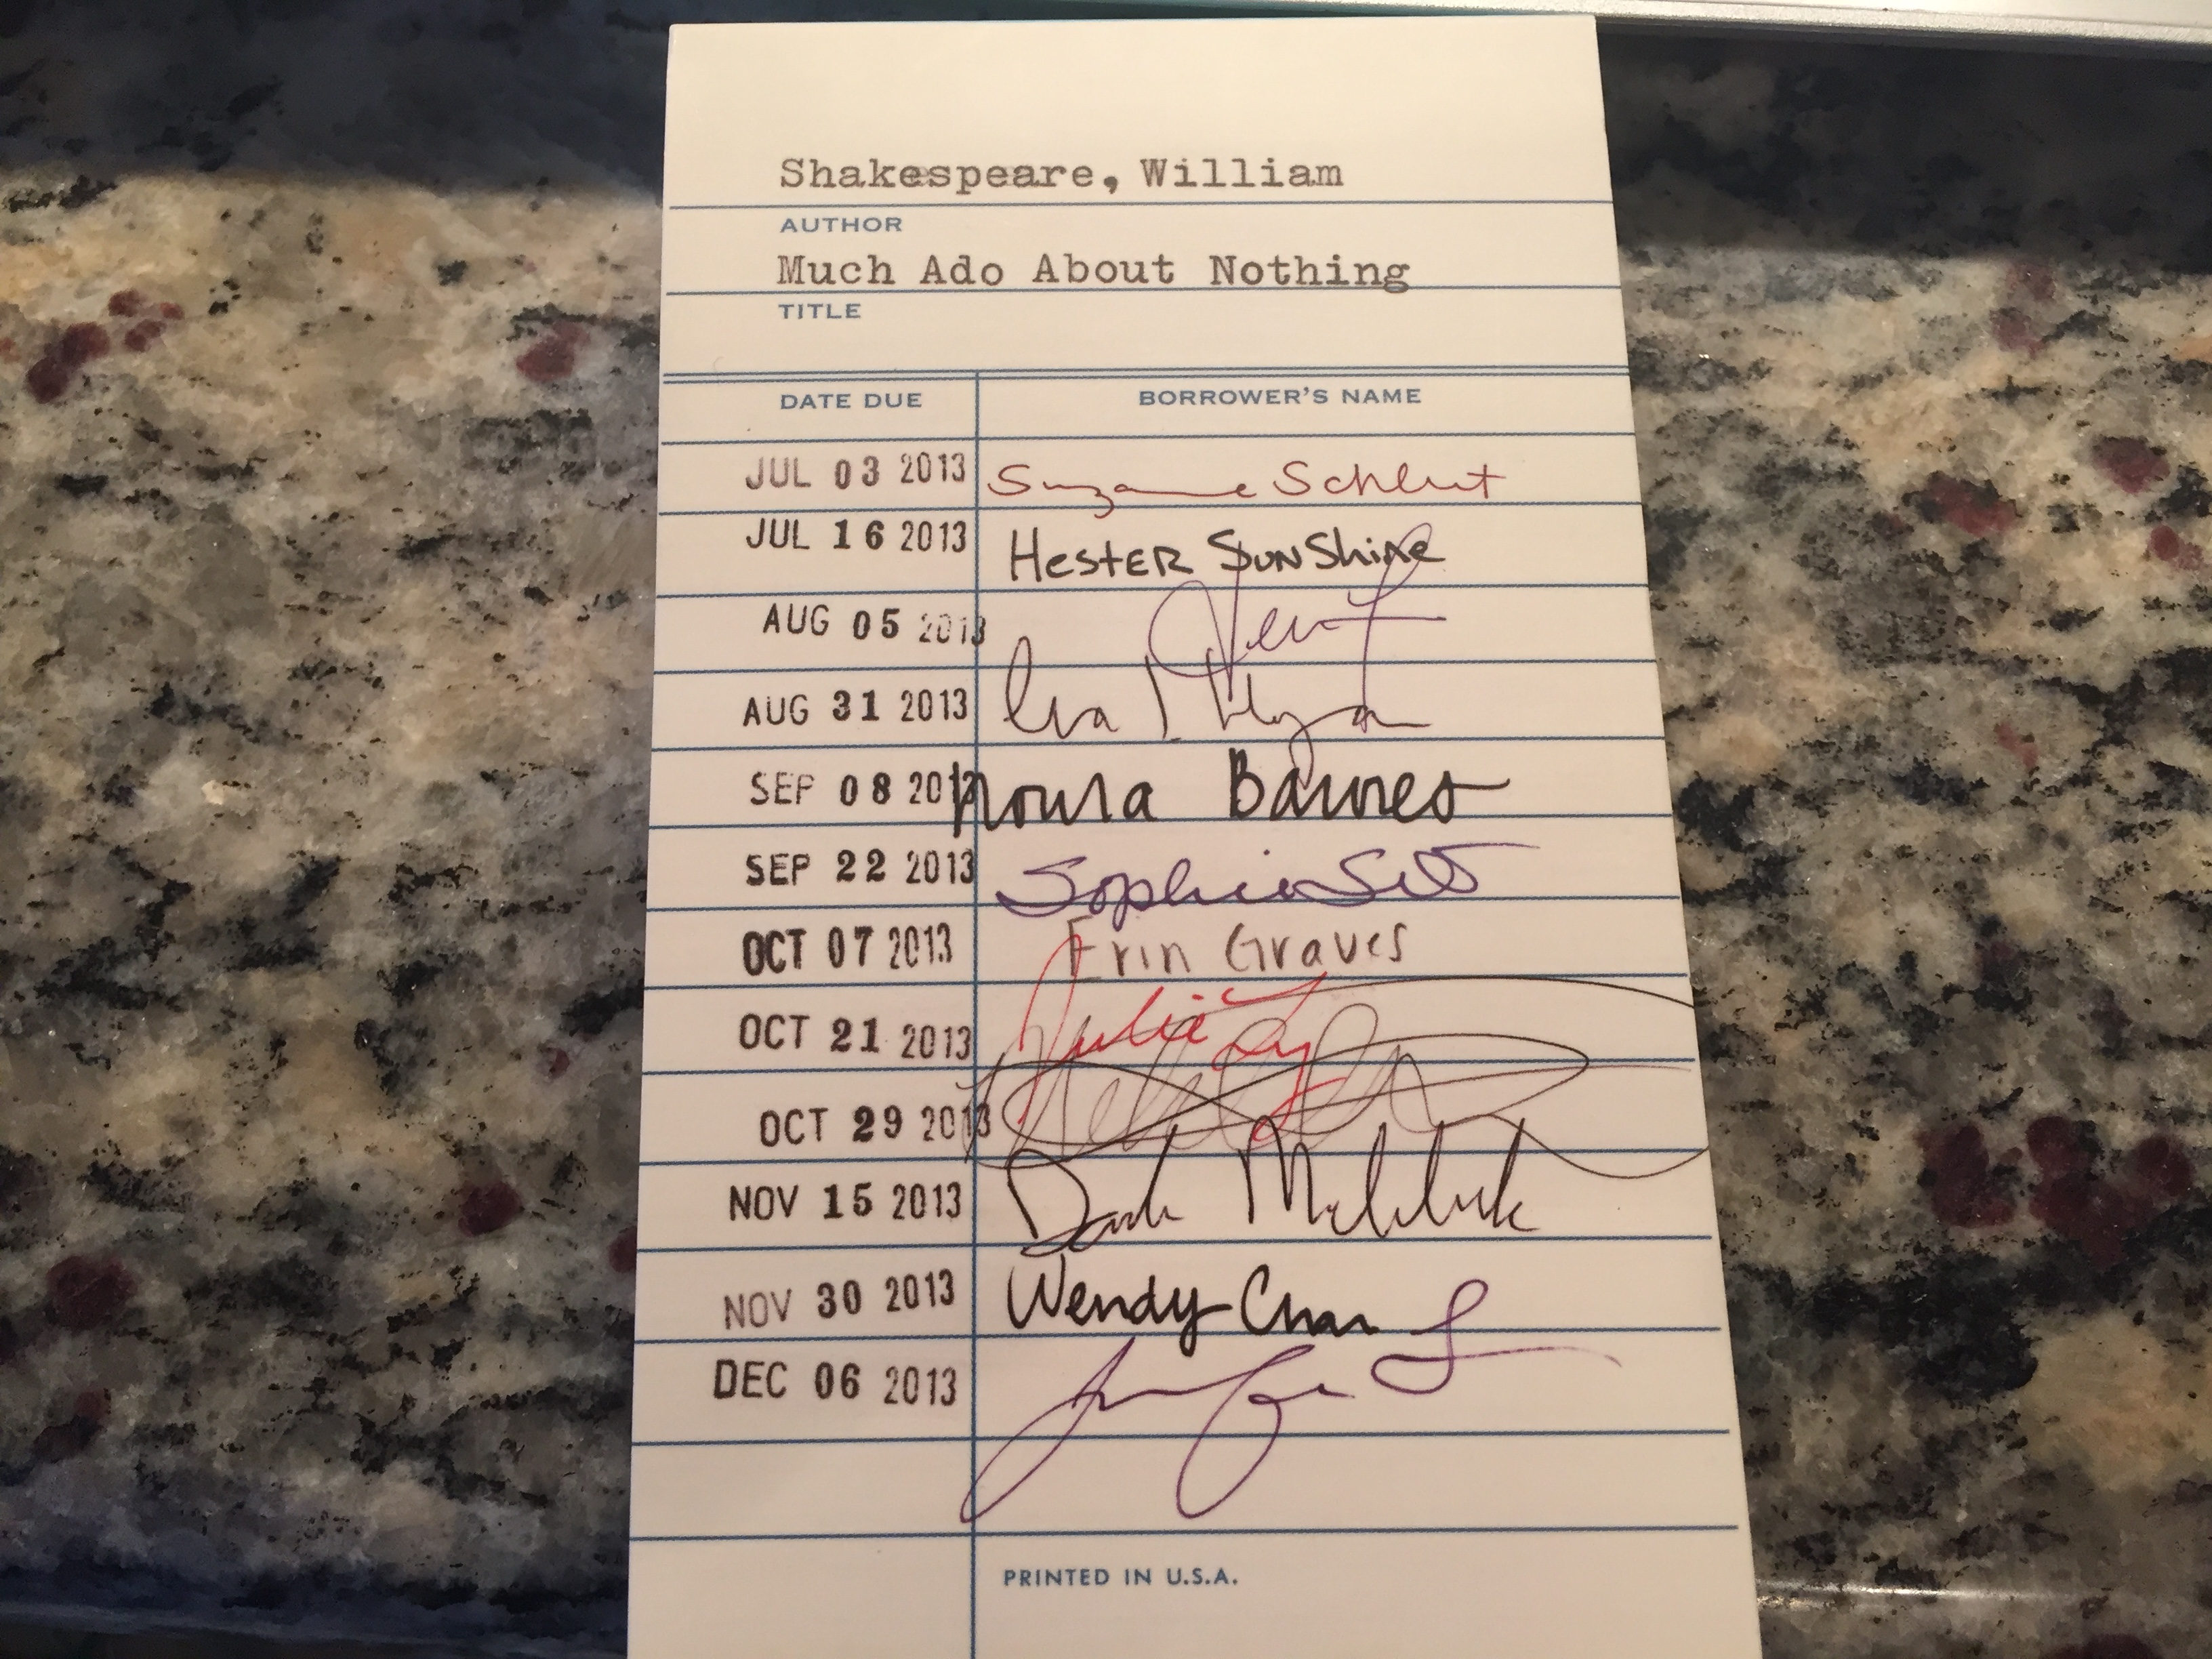 Shakespeare, William
AUTHOR
Much Ado About Nothing
TITLE
DATE DUE BORROWER'S NAME
JUL 03 2013 Suzanne
JUL 16 2013 HESTER SUNShine
AUG 05 2013
AUG 31 2013
SEP 08 2013 Barnes
SEP 22 2013 Sophie
OCT 07 2013 Erin Graves
OCT 21 2013 Julie
OCT 29 2013
NOV 15 2013
NOV 30 2013 Wendy Chan
DEC 06 2013
PRINTED IN U.S.A.